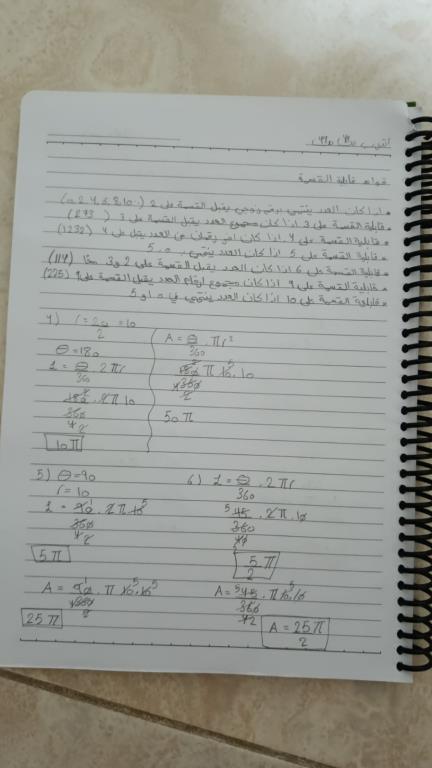 قواعد قابلية القسمة
• اذا كان العدد ينتهي برقم زوجي يقبل القسمة على 2 (0،2،4،6،8،10)
• قابلية القسمة على 3 اذا كان مجموع العدد يقبل القسمة على 3 (273)
• قابلية القسمة على 4 اذا كان اخر رقمان من العدد يقبل على 4 (1232)
• قابلية القسمة على 5 اذا كان العدد ينتهي بـ 0، 5
• قابلية القسمة على 6 اذا كان العدد يقبل القسمة على 2 و 3 معًا (114)
• قابلية القسمة على 9 اذا كان مجموع ارقام العدد يقبل القسمة على 9 (225)
• قابلية القسمة على 10 اذا كان العدد ينتهي في 0
4) r = 20/2 = 10
θ = 180
L = θ/360 . 2πr
180/360 . 2π 10
10π
A = θ/360 . πr²
180/360 π 10.10
50π
5) θ = 90
r = 10
L = 90/360 . 2π 10
5π
A = 90/360 . π 10.10
25π
6) L = θ/360 . 2πr
45/360 . 2π . 10
5π/2
A = 45/360 . π 10.10
A = 25π/2